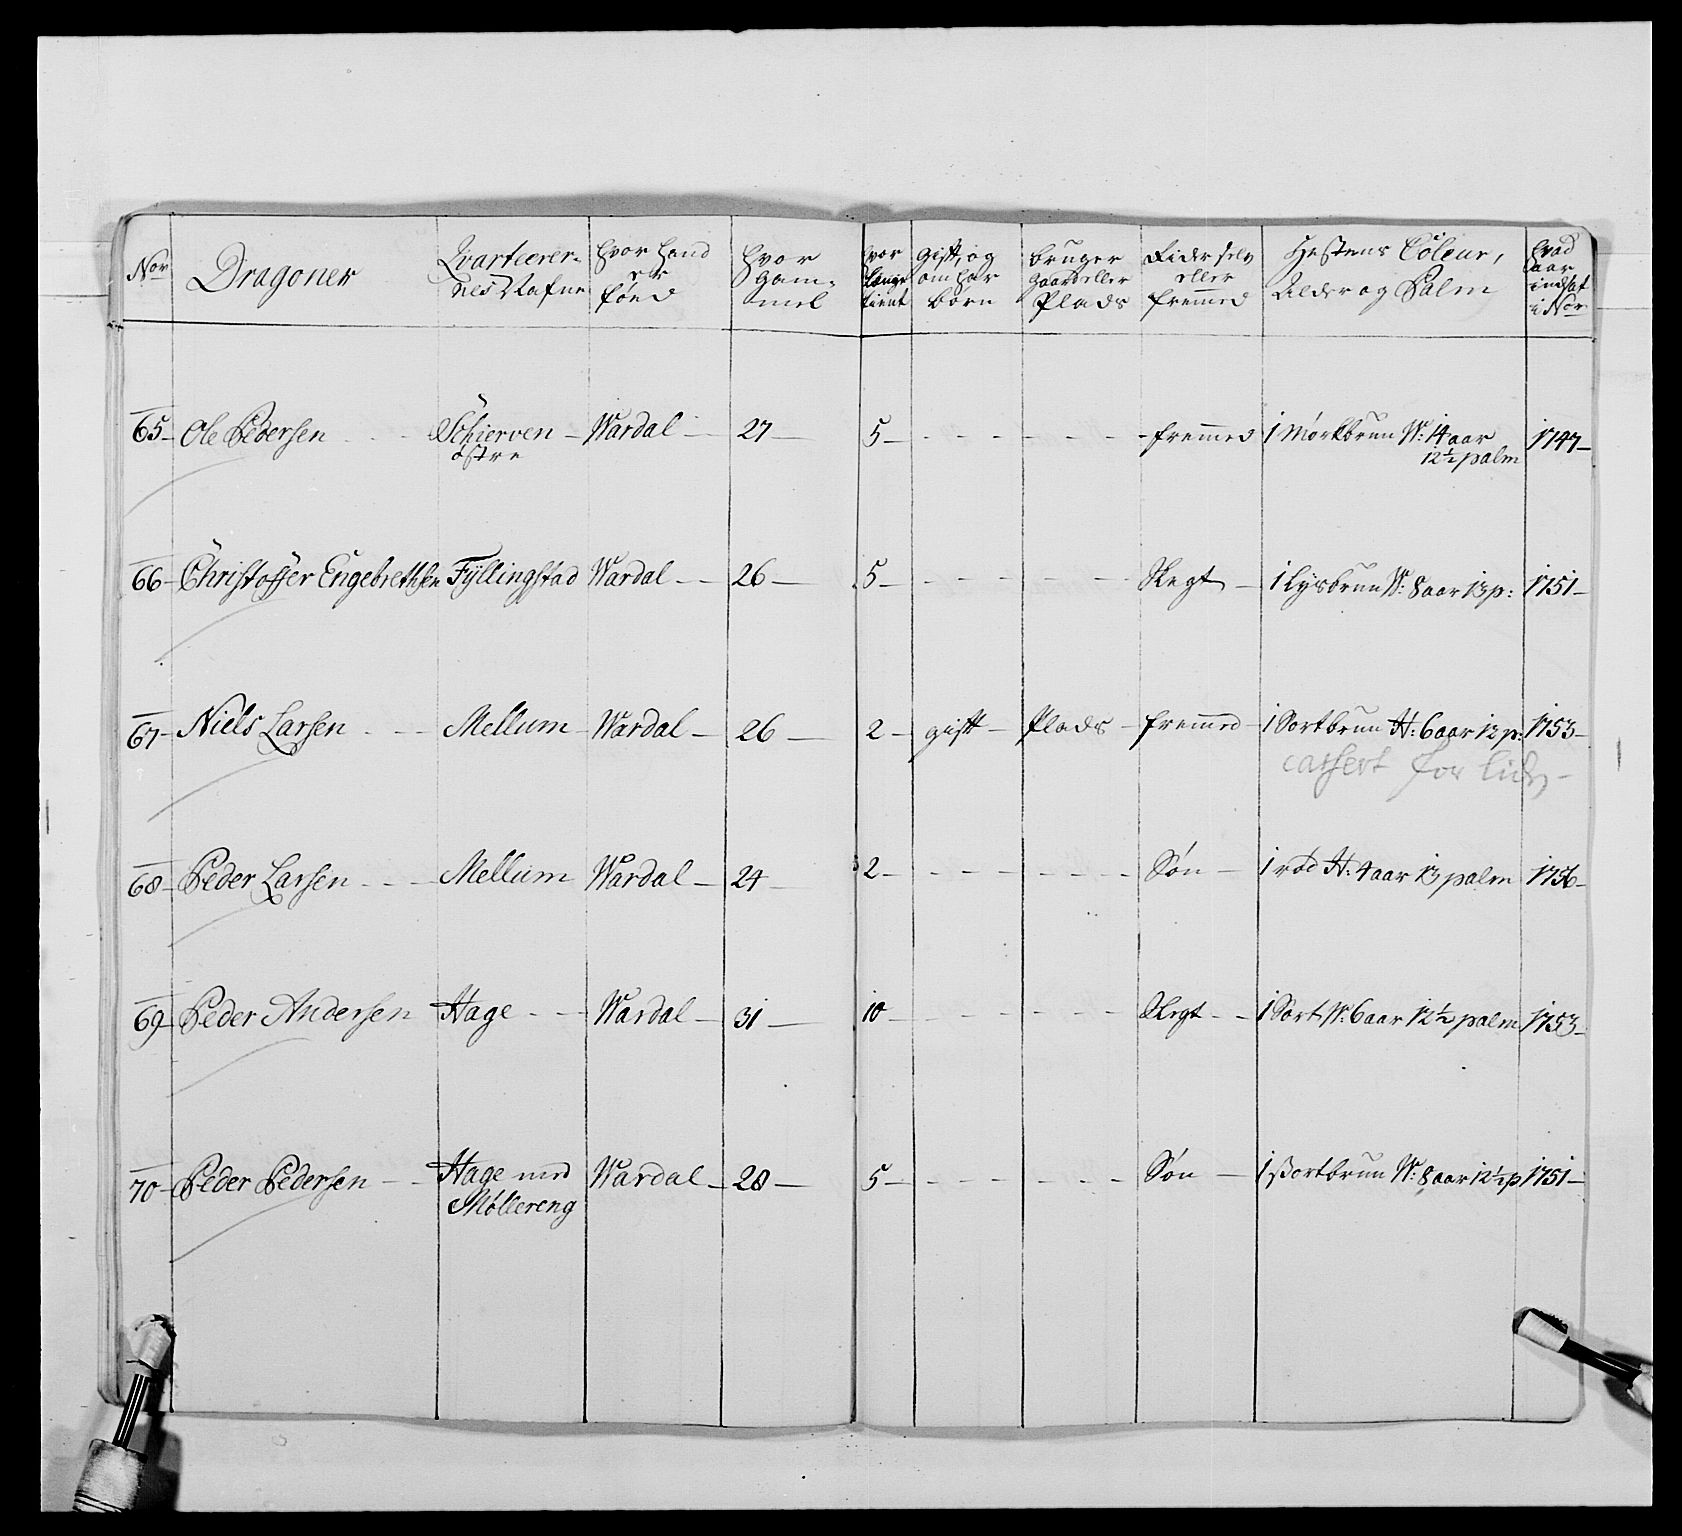 No͞r | Dragoner | Qvarteerer- nes Nafne | hvor hand er fød | hvor gam- mel | hvor længe tient | gift, og om har børn | bruger gaard eller Plads | Rider selv eller fremmed | Hestens Coleur, Alder og Palm | hvad aar indsat i No͞r
65 - Ole Pedersen - - - | Schierven østre | Wardal - | 27 - | 5 - | - - - | - - - | fremmed | 1 Mørkbrun W: 14 aar 12½ palm | 1747 -
66 - Christoffer Engebrethsen | Fyllingstad | Wardal - - | 26 - | 5 - | - - - | - - - | Knegt - | 1 Lysbrun W: 8 aar 13 p: | 1751 -
67 - Niels Larsen - - - | Mellum - | Wardal - | 26 - | 2 - | gift - | Plads - | fremed - | 1 Sortbrun H: 6 aar 12 p: | 1753 -
cassert for
68 - Peder Larsen - - - | Mellum | Wardal - | 24 - | 2 - | - - - | - - - | Søn - | 1 rød H: 4 aar 13 palm | 1756 -
69 - Peder Andersen | Hage - - | Wardal - | 31 - | 10 - | - - - | - - - | Knegt - - | 1 Sort W: 6 aar 12½ palm | 1753 -
70 - Peder Pedersen - - | Hage med Møllereng | Wardal - | 28 - | 5 - | - - - | - - - | Søn - | 1 Sortbrun W: 8 aar 12½ p | 1751 -